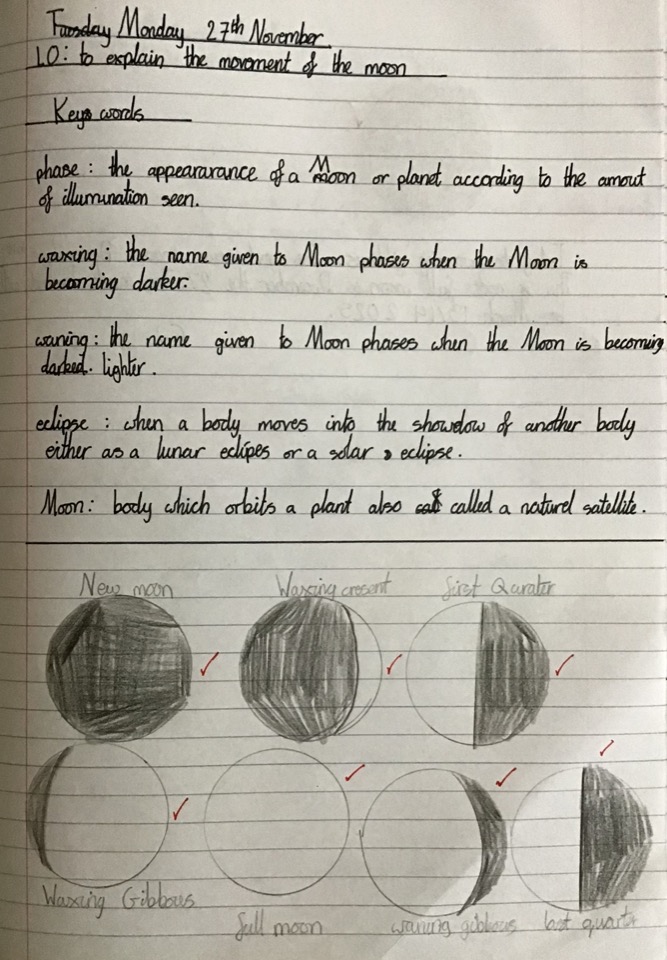 Tuesday Monday 27th November
LO: to explain the movement of the moon
Keys words
phase: the appeararance of a Moon or planet according to the amout
of illumination seen.
waxing: the name given to Moon phases when the Moon is
becoming darker.
waning: the name given to Moon phases when the Moon is becoming
darked. lighter.
eclipse: when a body moves into the showdow of another body
either as a lunar eclipes or a solar eclipse.
Moon: body which orbits a plant also called a naturel satellite.
New moon Waxing cresent first Qurater
Waxing Gibbous
full moon waning gibbous last quartr